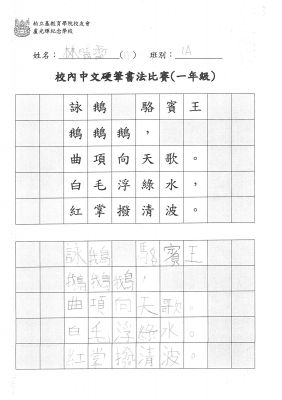 柏立基教育學院校友會
盧光輝紀念學校
姓名： 林 ( ) 班別： 1A
校內中文硬筆書法比賽(一年級)
詠鵝 駱賓王
鵝鵝鵝，
曲項向天歌。
白毛浮綠水，
紅掌撥清波。
詠鵝 駱賓王
鵝鵝鵝，
曲項向天歌。
白毛浮綠水。
紅掌撥清波。